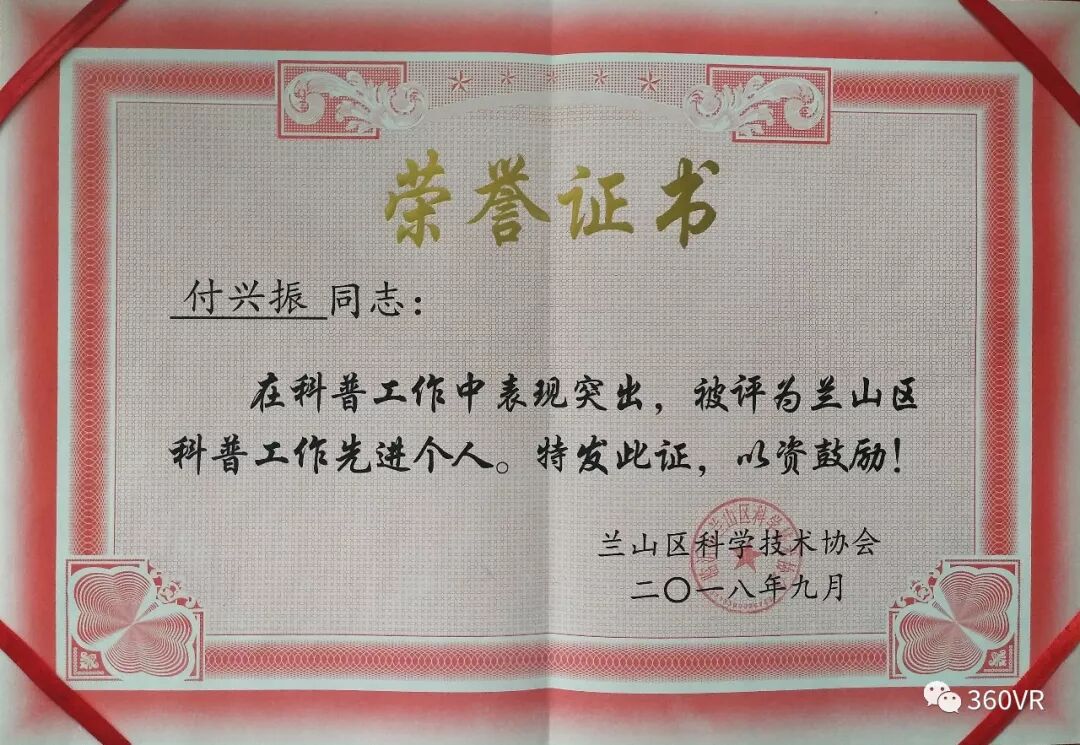 荣誉证书
付兴振 同志：
在科普工作中表现突出，被评为兰山区
科普工作先进个人。特发此证，以资鼓励！
兰山区科学技术协会
二〇一八年九月
360VR